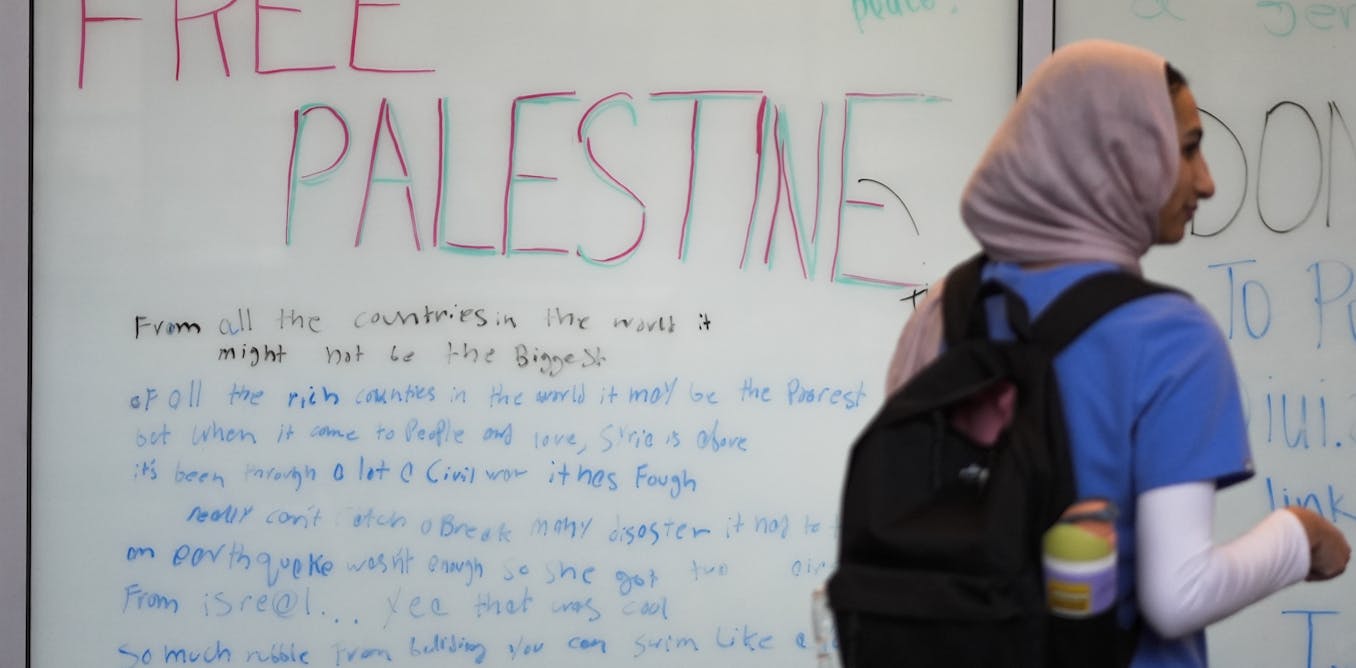 FREE
PALESTINE
peace.
From all the countries in the world it
might not be the Biggest
of all the rich counties in the world it may be the Poorest
but when it come to People and love, Syria is above
it's been through a lot a Civil war it hes Fough
really can't catch a Break many disaster it had to
an earthquake wasn't enough so she got two
From isre@l... yea that was cool
So much rubble From building you can swim Like a
DON
To
iui.
link